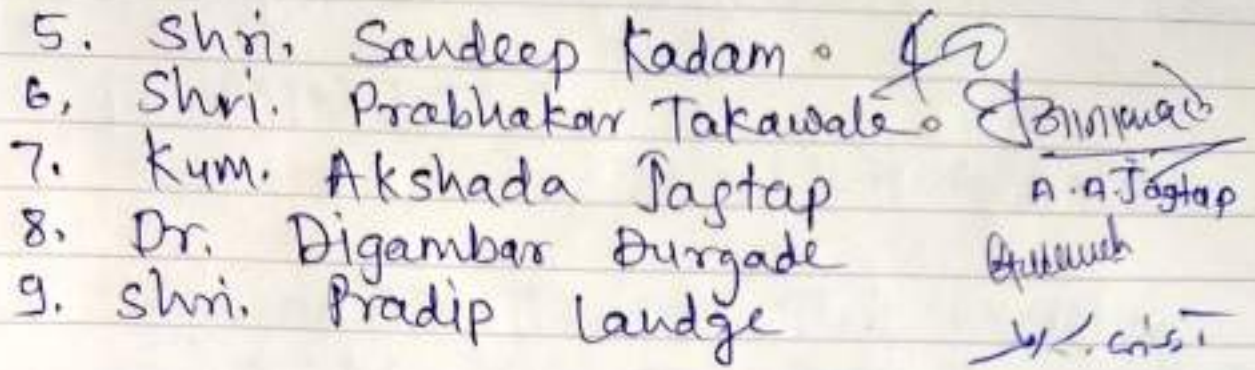 5. Shri. Sandeep Kadam.
6. Shri. Prabhakar Takawale.
7. Kum. Akshada Jagtap A.A.Jagtap
8. Dr. Digambar Durgade
9. Shri. Pradip Landge